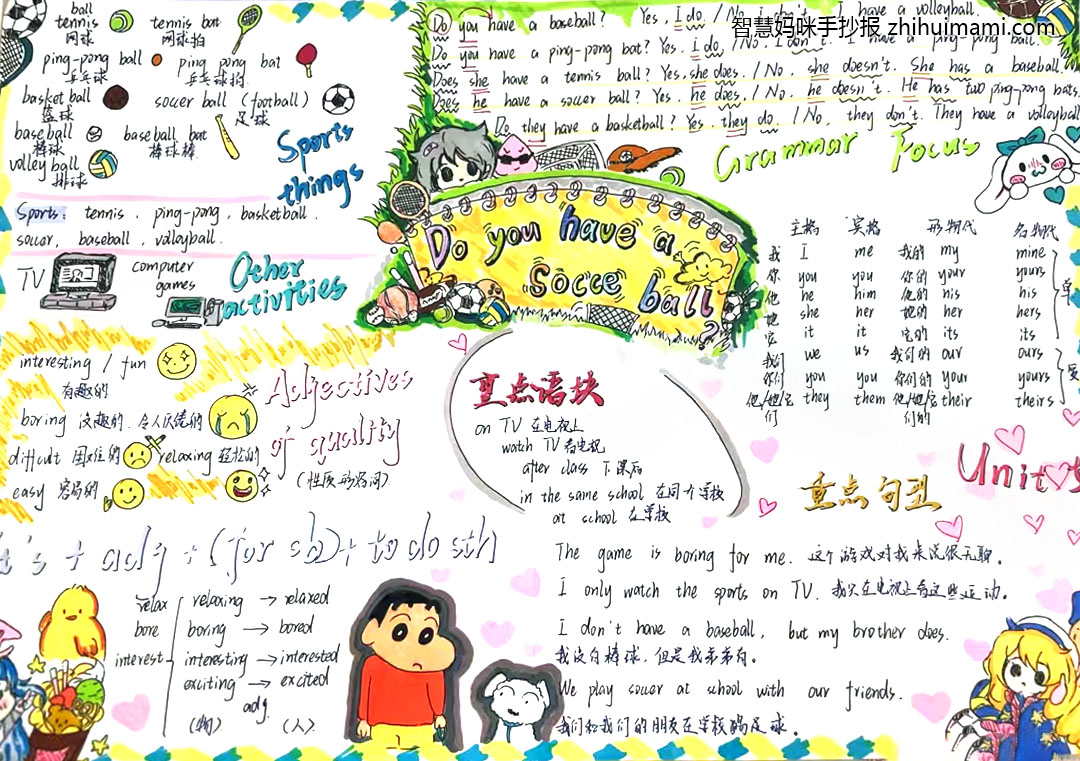 ball
tennis
网球
tennis bat
网球拍
ping-pong ball
乒乓球
ping pong bat
乒乓球拍
basket ball
篮球
soccer ball (football)
足球
baseball
棒球
baseball bat
棒球棒
volley ball
排球
Sports things
Sports: tennis, ping-pong, basketball.
soccer, baseball, volleyball.
TV
computer games
Other activities
Do you have a baseball? Yes, I do. / No, I don't. I have a volleyball.
Do you have a ping-pong bat? Yes, i do. / No, I don't. I have a ping-pong ball.
Does she have a tennis ball? Yes, she does. / No, she doesn't. She has a baseball.
Does he have a soccer ball? Yes, he does. / No, he doesn't. He has two ping-pong bats.
Do they have a basketball? Yes, they do. / No, they don't. They have a volleyball
智慧妈咪手抄报 zhihuimami.com
Grammar Focus
Do you have a
Socce ball?
主格 宾格 形物代 名物代
我 I me 我的 my mine
你 you you 你的 your yours
他 he him 他的 his his
她 she her 她的 her hers
它 it it 它的 its its
单
我们 we us 我们的 our ours
你们 you you 你们的 your yours
他/她/它们 they them 他/她/它们的 their theirs
复
interesting / fun
有趣的
boring 没趣的, 令人厌倦的
difficult 困难的
relaxing 轻松的
easy 容易的
Adjectives of quality
(性质形容词)
重点语块
on TV 在电视上
watch TV 看电视
after class 下课后
in the same school 在同一个学校
at school 在学校
Unit 5
重点句型
It's + adj + (for sb) + to do sth
relax
bore
interest
relaxing → relaxed
boring → bored
interesting → interested
exciting → excited
adj.
(物) (人)
The game is boring for me. 这个游戏对我来说很无聊。
I only watch the sports on TV. 我只在电视上看这些运动。
I don't have a baseball, but my brother does.
我没有棒球,但是我弟弟有。
We play soccer at school with our friends.
我们和我们的朋友在学校踢足球。
智慧妈咪